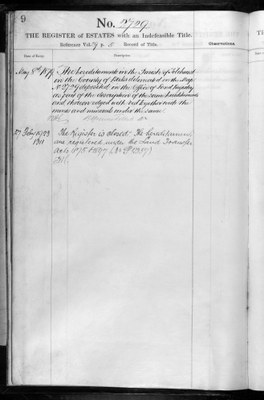 9
No. 2729
THE REGISTER of ESTATES with an Indefeasible Title.
Reference Vol. p. Record of Title.
Observations
Date of Entry.
Description.
May 8th 1879 The Hereditaments in the Parish of
in the County of delineated on the Map
No 2729 deposited in the Office of Land Registry
as part of the description of the same Hereditaments
and thereon edged with red together with the
mines and minerals under the same
27 July 1903 The Register is closed. The hereditaments
1311 are registered under the Land Transfer
Acts 1875 & 1897